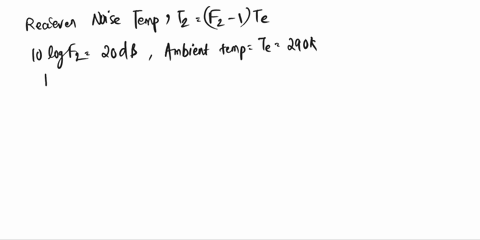 Receiver Noise Temp, T₂ = (F₂-1)Te
10 log F₂ = 20 dB, Ambient temp = Te = 290k
1